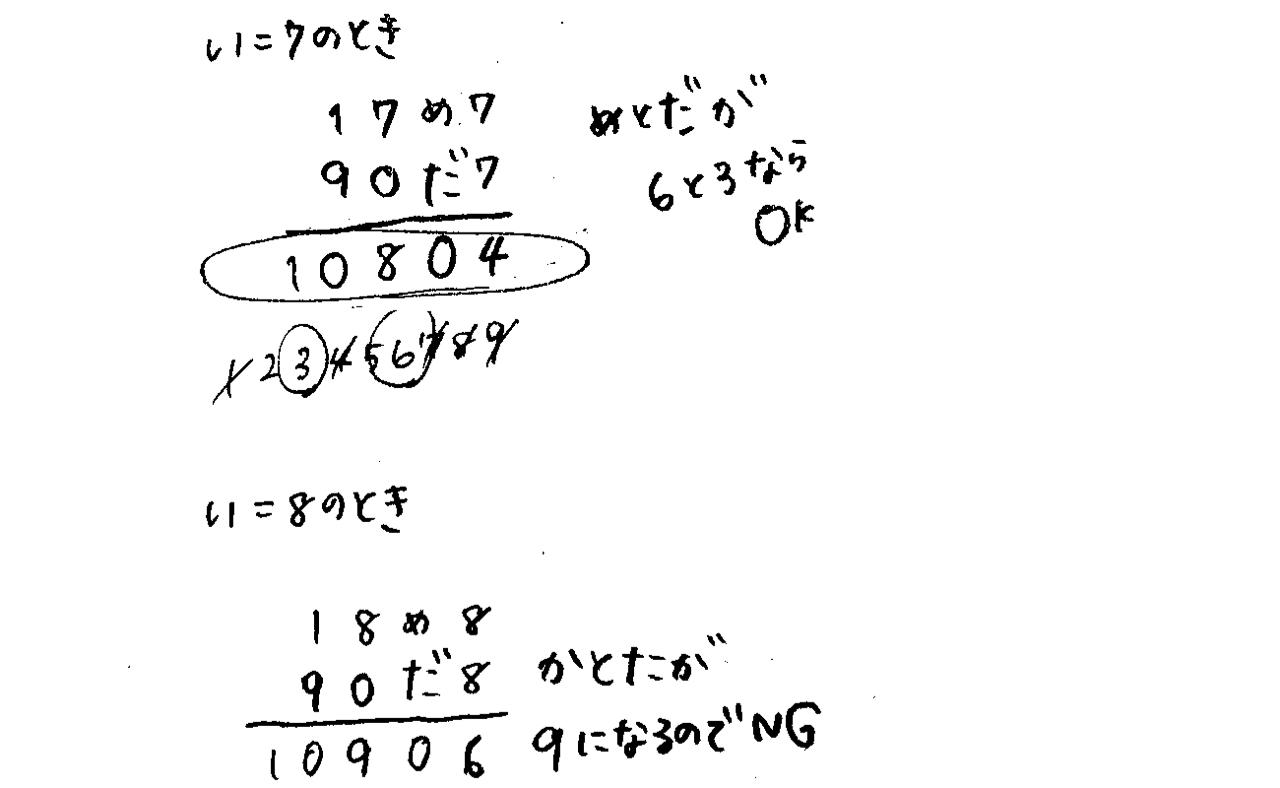 い=7のとき
17め7
めとだが
90だ7
6と3なら
OK
10804
123456789
い=8のとき
18め8
90だ8
がとだが
10906
9になるのでNG